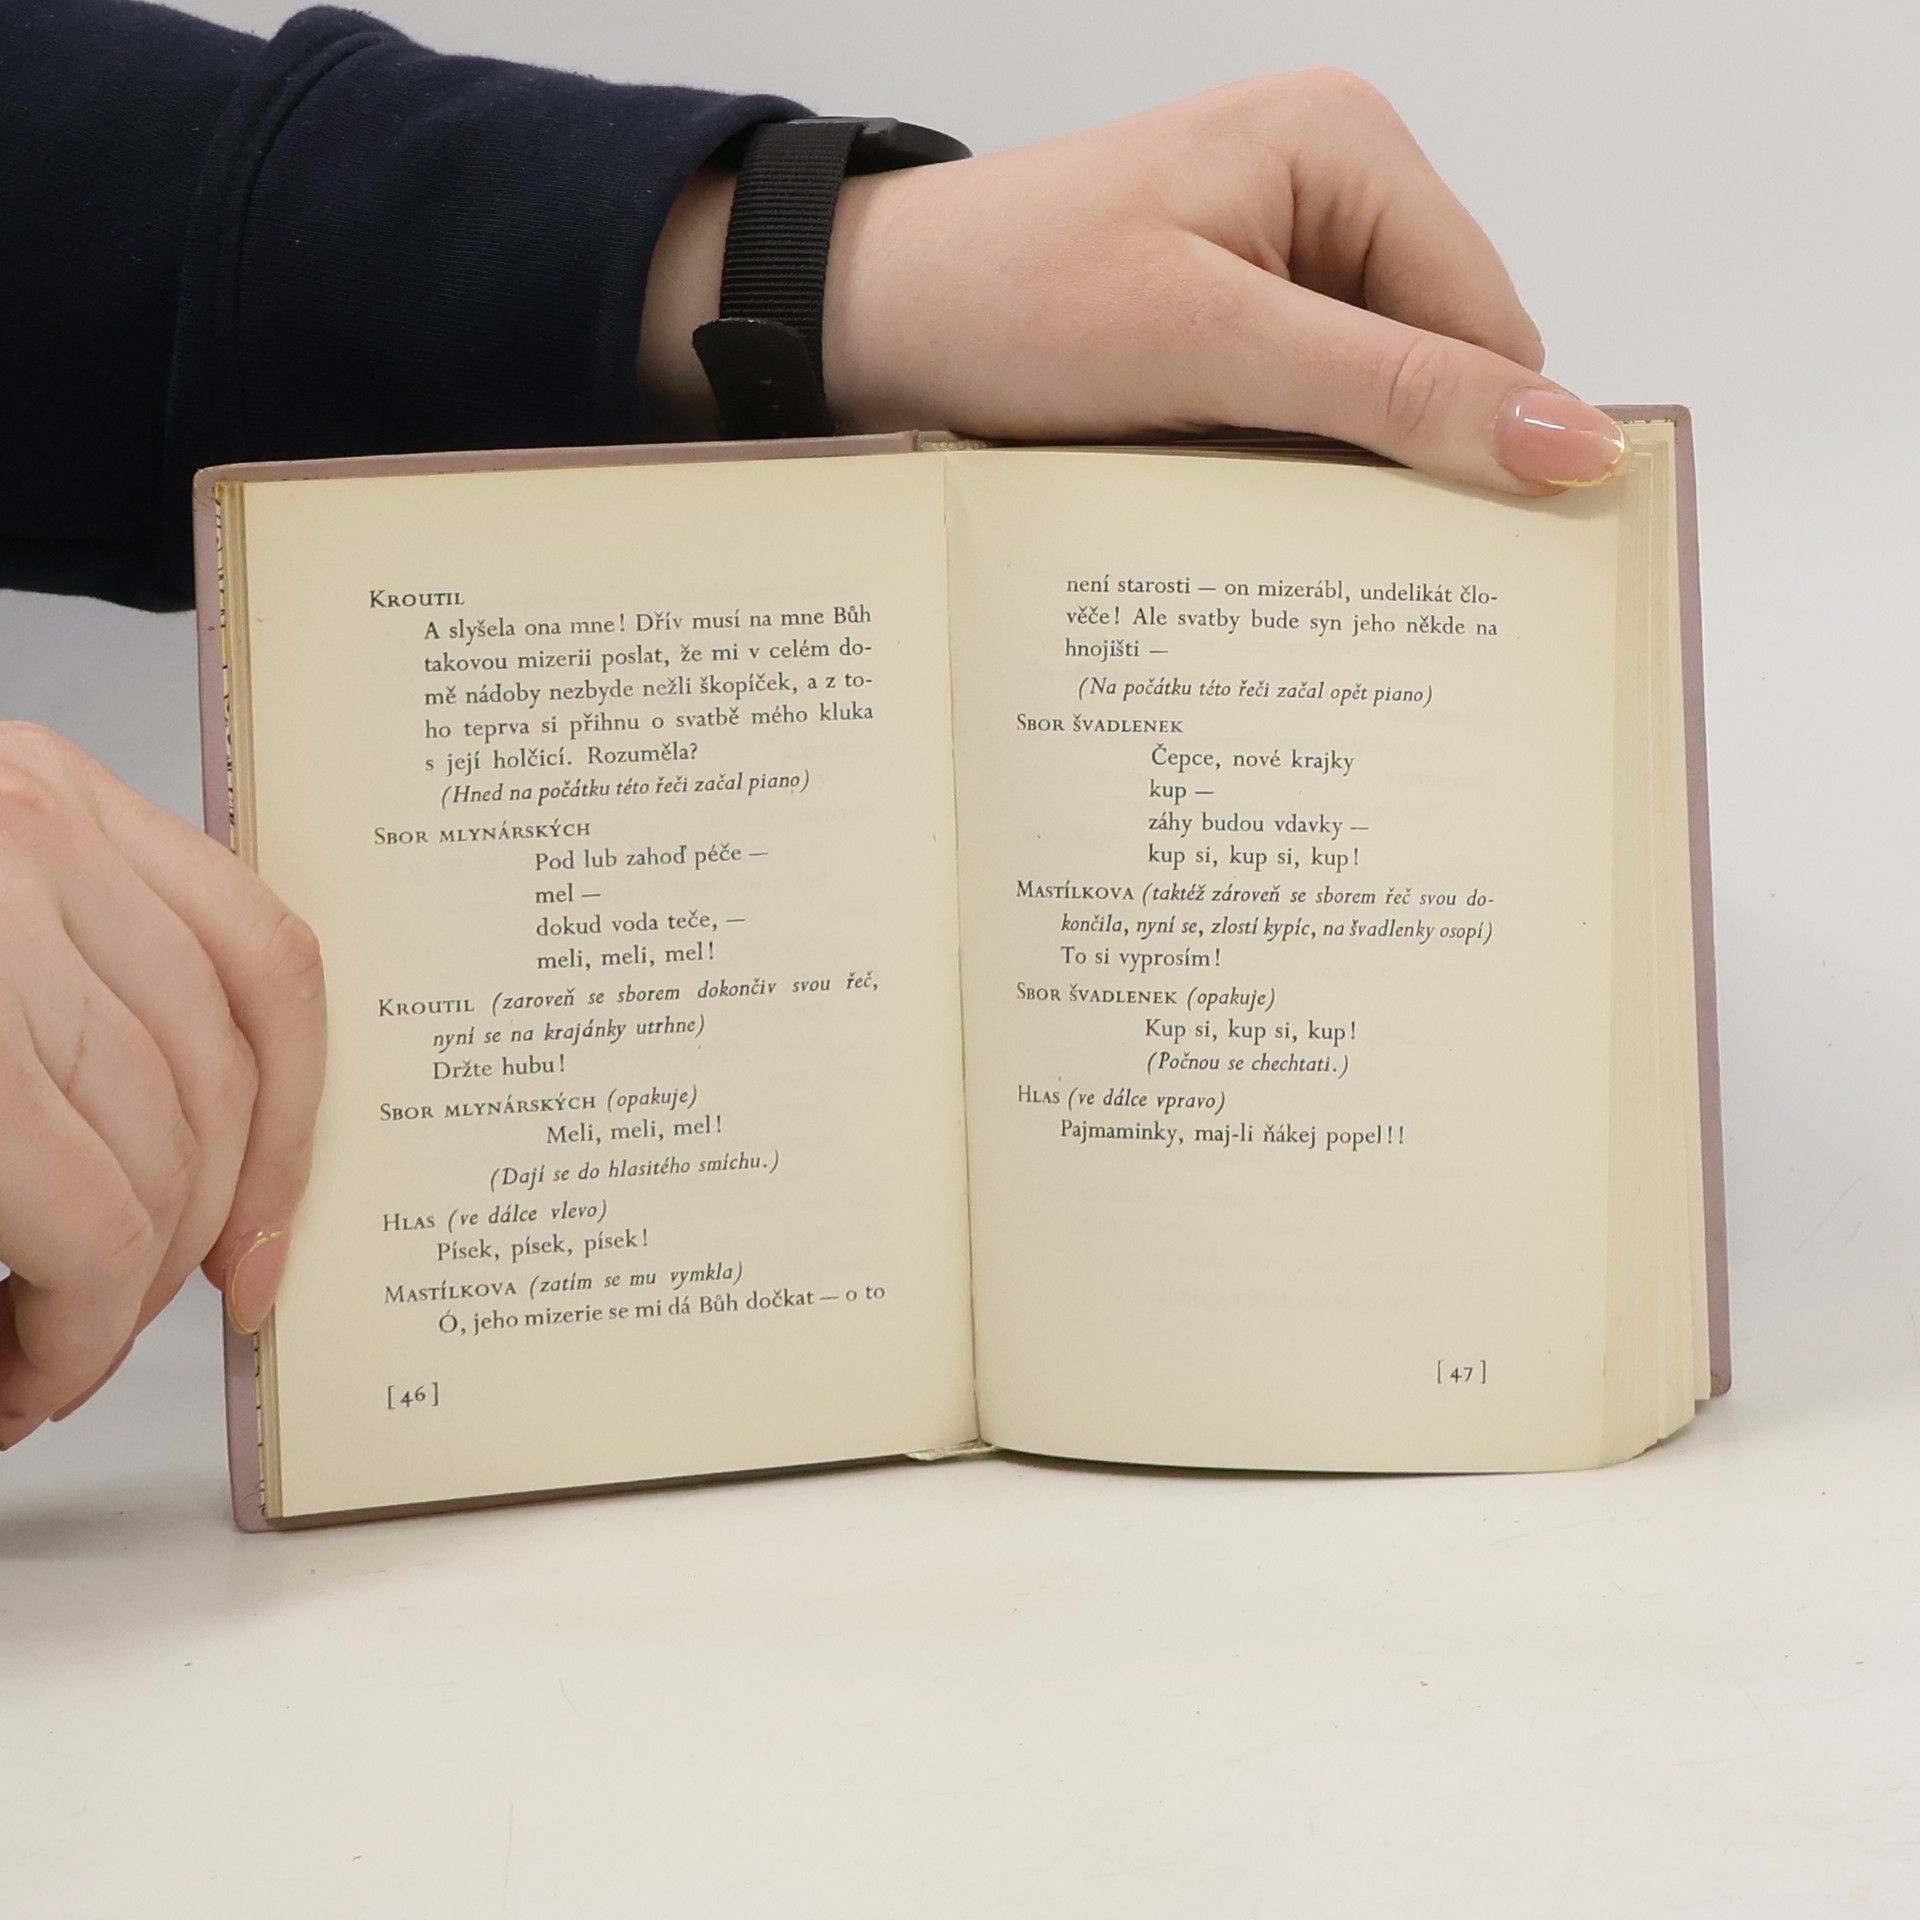 KROUTIL
A slyšela ona mne! Dřív musí na mne Bůh
takovou mizerii poslat, že mi v celém do-
mě nádoby nezbyde nežli škopíček, a z to-
ho teprva si přihnu o svatbě mého kluka
s její holčicí. Rozuměla?
(Hned na počátku této řeči začal piano)
SBOR MLYNÁRSKÝCH
Pod lub zahoď péče —
mel —
dokud voda teče, —
meli, meli, mel!
KROUTIL (zaroveň se sborem dokončiv svou řeč,
nyní se na krajánky utrhne)
Držte hubu!
SBOR MLYNÁRSKÝCH (opakuje)
Meli, meli, mel!
(Dají se do hlasitého smíchu.)
HLAS (ve dálce vlevo)
Písek, písek, písek!
MASTÍLKOVA (zatím se mu vymkla)
Ó, jeho mizerie se mi dá Bůh dočkat — o to
[46]
není starosti — on mizerábl, undelikát člo-
věče! Ale svatby bude syn jeho někde na
hnojišti —
(Na počátku této řeči začal opět piano)
SBOR ŠVADLENEK
Čepce, nové krajky
kup —
záhy budou vdavky —
kup si, kup si, kup!
MASTÍLKOVA (taktéž zároveň se sborem řeč svou do-
končila, nyní se, zlostí kypíc, na švadlenky osopí)
To si vyprosím!
SBOR ŠVADLENEK (opakuje)
Kup si, kup si, kup!
(Počnou se chechtati.)
HLAS (ve dálce vpravo)
Pajmaminky, maj-li ňákej popel!!
[47]